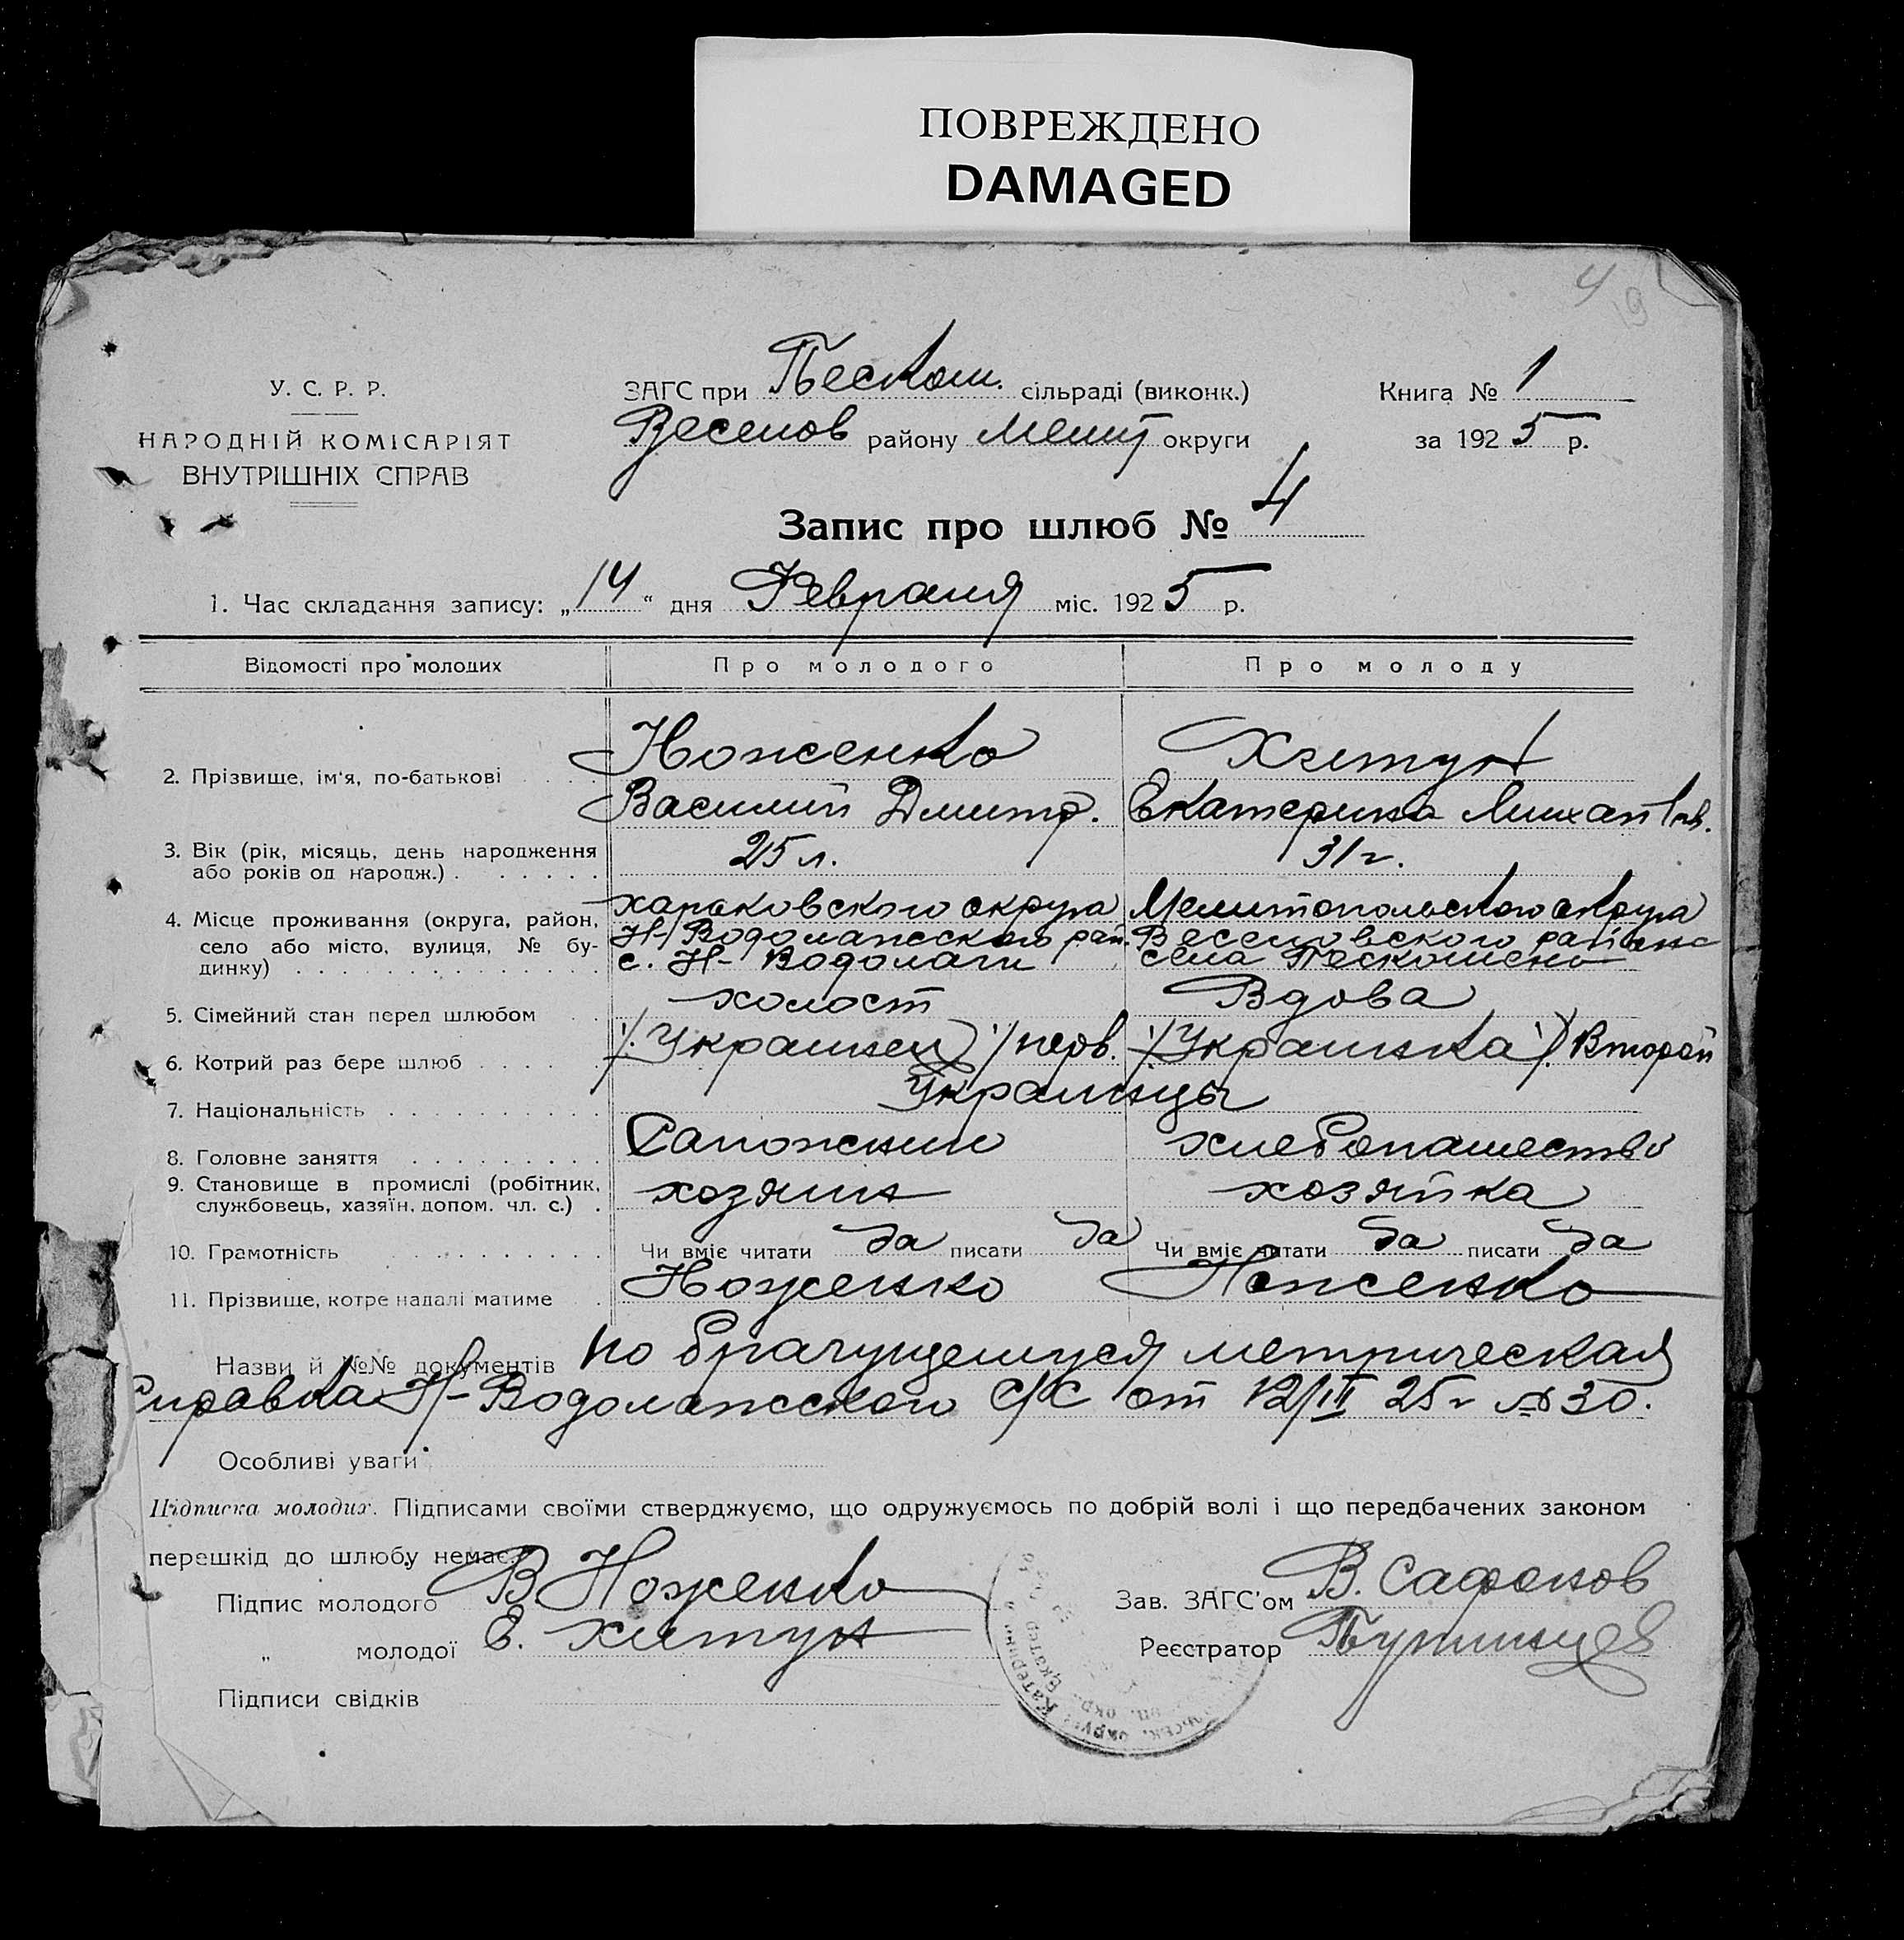 ПОВРЕЖДЕНО
DAMAGED
4
9
У. С. Р. Р.
НАРОДНІЙ КОМІСАРІЯТ
ВНУТРІШНІХ СПРАВ
ЗАГС при Пескош. сільраді (виконк.)
Веселов району Мелит округи
Книга № 1
за 1925 р.
Запис про шлюб № 4
1. Час складання запису: „14“ дня Февраля міс. 1925 р.
Відомості про молодих Про молодого Про молоду
2. Прізвище, ім'я, по-батькові Ноженко
Василий Дмитр. Екатерина Михайлов.
3. Вік (рік, місяць, день народження або років од народж.) 25 л. 31 г.
4. Місце проживання (округа, район, село або місто, вулиця, № будинку)
харьковского округа Мелитопольского округа
Н-Водолажского рай. Веселовского района
с. Н-Водолаги села Пескошено
5. Сімейний стан перед шлюбом холост Вдова
6. Котрий раз бере шлюб /. Украинец /перв. /. Украинка /. Второй
7. Національність Украинцы
8. Головне заняття Сапожник хлебопашество
9. Становище в промислі (робітник, службовець, хазяїн, допом. чл. с.) хозяин хозяйка
10. Грамотність Чи вміє читати да писати да Чи вміє читати да писати да
11. Прізвище, котре надалі матиме Ноженко Ноженко
Назви й №№ документів по брачущемуся метрическая
справка Н-Водолажского С/С от 12/II 25 г № 30.
Особливі уваги
Підписка молодих. Підписами своїми стверджуємо, що одружуємось по добрій волі і що передбачених законом
перешкід до шлюбу немає.
Підпис молодого В Ноженко
„ молодої Е. Хилтун
Підписи свідків
Зав. ЗАГС'ом В. Сафонов
Реєстратор